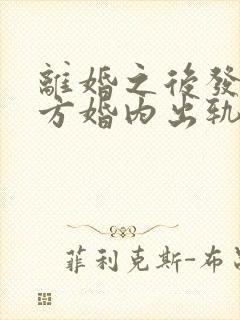 離婚之後發
方婚內出軌
菲利克斯-布